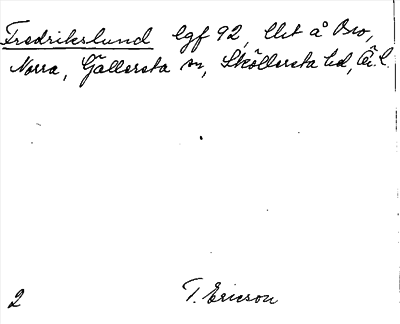 Fredrikslund lgf 92, lht å Bro,
Norra, Gällersta sn, Sköllersta hd, Ö.l.
2 T. Ericson